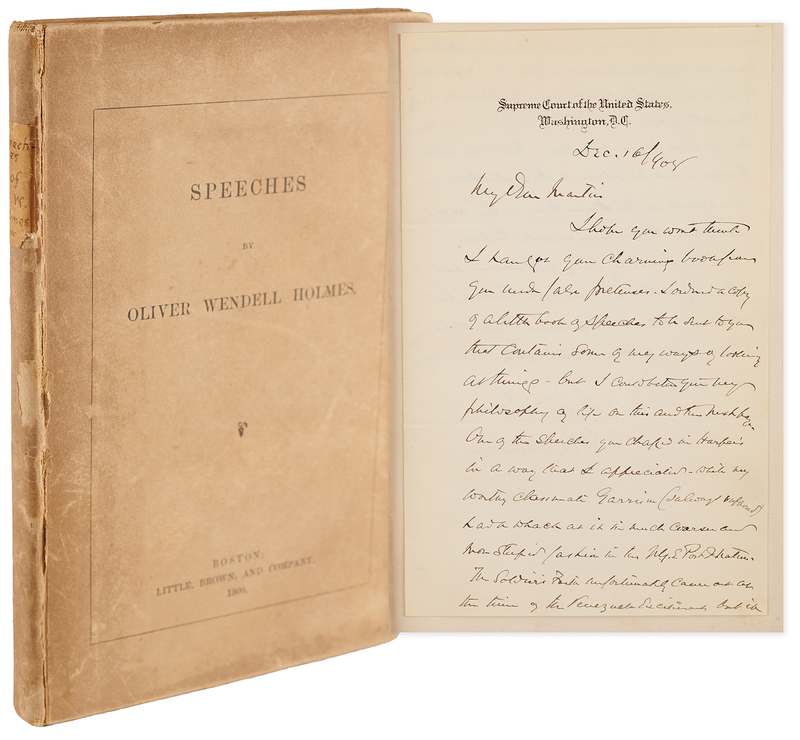 SPEECHES
BY
OLIVER WENDELL HOLMES.
BOSTON:
LITTLE, BROWN, AND COMPANY.
1900.
of
W.
Supreme Court of the United States,
Washington, D.C.
Dec. 16/
My Dear Martin
I hope you wont think
I have got your charming book from
you under false pretenses. I ordered a copy
of a little book of speeches to be sent to you
that contains some of my ways of looking
at things - but I could better give my
philosophy of life on this and the next page
One of the speeches you chafed in Harper's
in a way that I appreciated - while my
worthy classmate Garrison
had a whack at it in much coarser and
more stupid fashion in the N.Y. E. Post & Nation.
The Soldier's Faith unfortunately came out at
the time of the Venezuela Excitement, but it